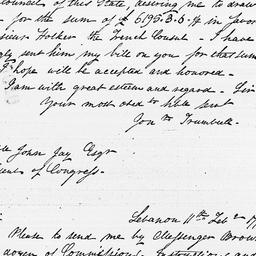 Council of this State, desiring me to draw
for the sum of £ 6195.3.6 in favor
Holker the French Consul. I have
sent him my bill on you for that sum
I hope will be accepted and honored.
I am with great esteem and regard. Sir
Your most obed.t hble serv.t
Jon.th Trumbull.
John Jay Esq.r
of Congress.
Lebanon 11.th Feb.
Please to send me by Messenger Brown
dozen of Commissions, Instructions and